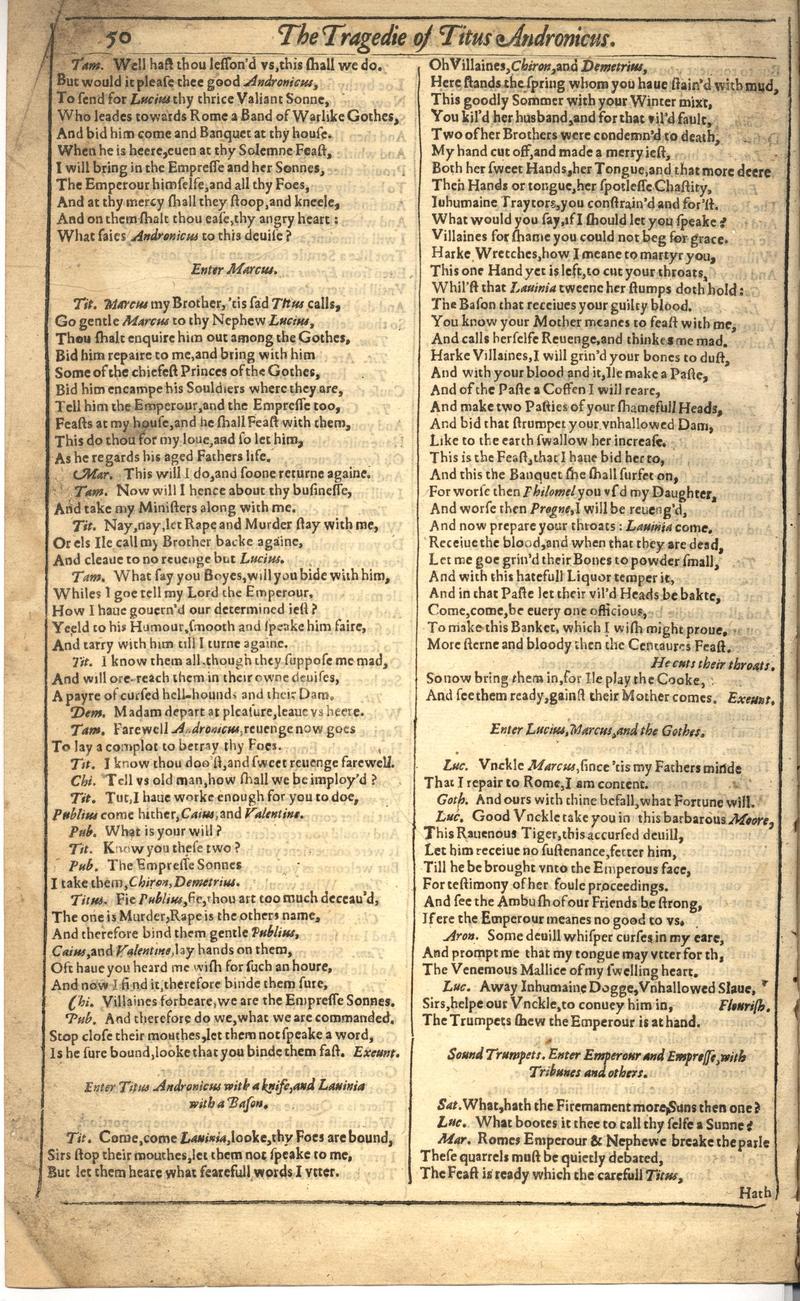 50
The Tragedie of Titus Andronicus.
Tam. Well haſt thou leſſon'd vs, this ſhall we do.
But would it pleaſe thee good Andronicus,
To ſend for Lucius thy thrice Valiant Sonne,
Who leades towards Rome a Band of Warlike Gothes,
And bid him come and Banquet at thy houſe.
When he is heere, euen at thy Solemne Feaſt,
I will bring in the Empreſſe and her Sonnes,
The Emperour himſelfe, and all thy Foes,
And at thy mercy ſhall they ſtoop, and kneele,
And on them ſhalt thou eaſe, thy angry heart:
What ſaies Andronicus to this deuiſe?
Enter Marcus.
Tit. Marcus my Brother, 'tis ſad Titus calls,
Go gentle Marcus to thy Nephew Lucius,
Thou ſhalt enquire him out among the Gothes,
Bid him repaire to me, and bring with him
Some of the chiefeſt Princes of the Gothes,
Bid him encampe his Souldiers where they are,
Tell him the Emperour, and the Empreſſe too,
Feaſts at my houſe, and he ſhall Feaſt with them,
This do thou for my loue, and ſo let him,
As he regards his aged Fathers life.
Mar. This will I do, and ſoone returne againe.
Tam. Now will I hence about thy buſineſſe,
And take my Miniſters along with me.
Tit. Nay, nay, let Rape and Murder ſtay with me,
Or els Ile call my Brother backe againe,
And cleaue to no reuenge but Lucius.
Tam. What ſay you Boyes, will you bide with him,
Whiles I goe tell my Lord the Emperour,
How I haue gouern'd our determined ieſt?
Yeeld to his Humour, ſmooth and ſpeake him faire,
And tarry with him till I turne againe.
Tit. I know them all, though they ſuppoſe me mad,
And will ore-reach them in their owne deuiſes,
A payre of curſed hell-hounds and their Dam.
Dem. Madam depart at pleaſure, leaue vs heere.
Tam. Farewell Andronicus, reuenge now goes
To lay a complot to betray thy Foes.
Tit. I know thou doo'ſt, and ſweet reuenge farewell.
Chi. Tell vs old man, how ſhall we be imploy'd?
Tit. Tut, I haue worke enough for you to doe,
Publius come hither, Caius, and Valentine.
Pub. What is your will?
Tit. Know you theſe two?
Pub. The Empreſſe Sonnes
I take them, Chiron, Demetrius.
Titus. Fie Publius, fie, thou art too much deceau'd,
The one is Murder, Rape is the others name,
And therefore bind them gentle Publius,
Caius, and Valentine, lay hands on them,
Oft haue you heard me wiſh for ſuch an houre,
And now I find it, therefore binde them ſure,
Chi. Villaines forbeare, we are the Empreſſe Sonnes.
Pub. And therefore do we, what we are commanded.
Stop cloſe their mouthes, let them not ſpeake a word,
Is he ſure bound, looke that you binde them faſt. Exeunt.
Enter Titus Andronicus with a knife, and Lauinia
with a Baſon.
Tit. Come, come Lauinia, looke, thy Foes are bound,
Sirs ſtop their mouthes, let them not ſpeake to me,
But let them heare what fearefull words I vtter.
Oh Villaines, Chiron, and Demetrius,
Here ſtands the ſpring whom you haue ſtain'd with mud,
This goodly Sommer with your Winter mixt,
You kil'd her husband, and for that vil'd fault,
Two of her Brothers were condemn'd to death,
My hand cut off, and made a merry ieſt,
Both her ſweet Hands, her Tongue, and that more deere
Then Hands or tongue, her ſpotleſſe Chaſtity,
Iuhumaine Traytors, you conſtrain'd and for'ſt.
What would you ſay, if I ſhould let you ſpeake?
Villaines for ſhame you could not beg for grace.
Harke Wretches, how I meane to martyr you,
This one Hand yet is left, to cut your throats,
Whil'ſt that Lauinia tweene her ſtumps doth hold:
The Baſon that receiues your guilty blood.
You know your Mother meanes to feaſt with me,
And calls herſelfe Reuenge, and thinkes me mad.
Harke Villaines, I will grin'd your bones to duſt,
And with your blood and it, Ile make a Paſte,
And of the Paſte a Coffen I will reare,
And make two Paſties of your ſhamefull Heads,
And bid that ſtrumpet your vnhallowed Dam,
Like to the earth ſwallow her increaſe.
This is the Feaſt, that I haue bid her to,
And this the Banquet ſhe ſhall ſurfet on,
For worſe then Philomel you vſ'd my Daughter,
And worſe then Progne, I will be reueng'd,
And now prepare your throats: Lauinia come.
Receiue the blood, and when that they are dead,
Let me goe grin'd their Bones to powder ſmall,
And with this hatefull Liquor temper it,
And in that Paſte let their vil'd Heads be bakte,
Come, come, be euery one officious,
To make this Banket, which I wiſh might proue,
More ſterne and bloody then the Centaures Feaſt.
He cuts their throats.
So now bring them in, for Ile play the Cooke,
And ſee them ready, gainſt their Mother comes. Exeunt.
Enter Lucius, Marcus, and the Gothes.
Luc. Vnckle Marcus, ſince 'tis my Fathers minde
That I repair to Rome, I am content.
Goth. And ours with thine befall, what Fortune will.
Luc. Good Vnckle take you in this barbarous Moore,
This Rauenous Tiger, this accurſed deuill,
Let him receiue no ſuſtenance, fetter him,
Till he be brought vnto the Emperous face,
For teſtimony of her foule proceedings.
And ſee the Ambuſh of our Friends be ſtrong,
If ere the Emperour meanes no good to vs.
Aron. Some deuill whiſper curſes in my eare,
And prompt me that my tongue may vtter forth,
The Venemous Mallice of my ſwelling heart.
Luc. Away Inhumaine Dogge, Vnhallowed Slaue,
Sirs, helpe our Vnckle, to conuey him in, Flouriſh.
The Trumpets ſhew the Emperour is at hand.
Sound Trumpets. Enter Emperour and Empreſſe, with
Tribunes and others.
Sat. What, hath the Firemament more Suns then one?
Luc. What bootes it thee to call thy ſelfe a Sunne?
Mar. Romes Emperour & Nephewe breake the parle
Theſe quarrels muſt be quietly debated,
The Feaſt is ready which the carefull Titus,
Hath